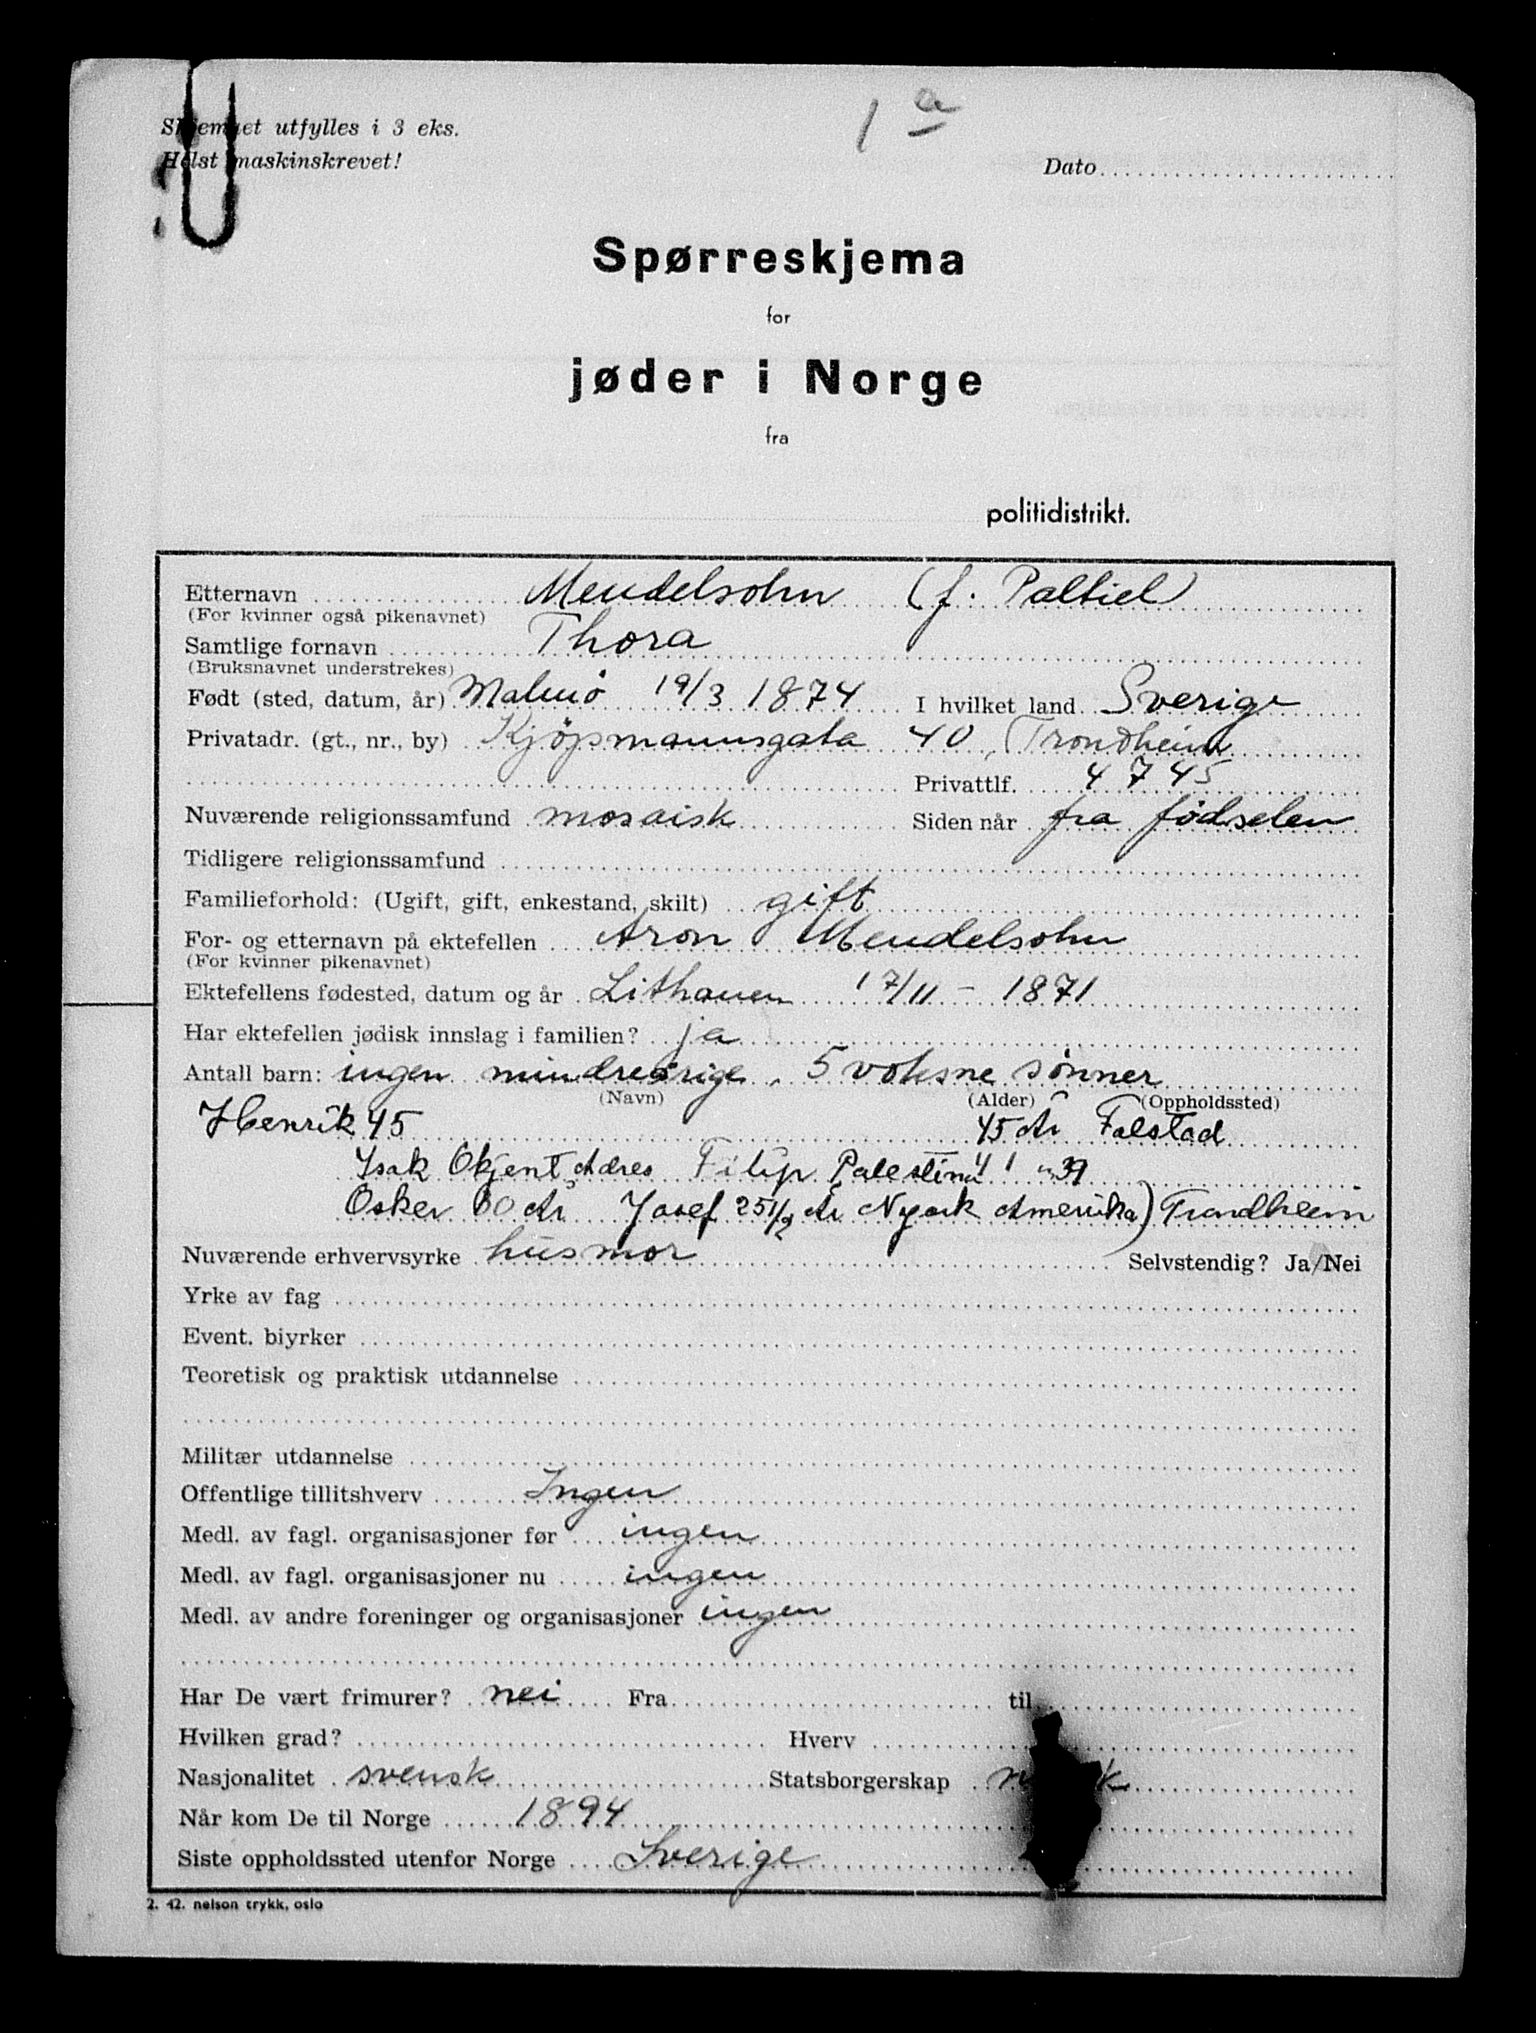 1 a
Skjemaet utfylles i 3 eks.
Helst maskinskrevet!
Dato
Spørreskjema
for
jøder i Norge
fra
politidistrikt.
Etternavn Mendelsohn (f. Paltiel)
(For kvinner også pikenavnet)
Samtlige fornavn Thora
(Bruksnavnet understrekes)
Født (sted, datum, år) Malmö 19/3 1874 I hvilket land Sverige
Privatadr. (gt., nr., by) Kjöpmannsgata 40, Trondheim
Privattlf. 4745
Nuværende religionssamfund mosaisk Siden når fra fødselen
Tidligere religionssamfund
Familieforhold: (Ugift, gift, enkestand, skilt) gift
For- og etternavn på ektefellen Aron Mendelsohn
(For kvinner pikenavnet)
Ektefellens fødested, datum og år Lithauen 17/11 - 1871
Har ektefellen jødisk innslag i familien? ja
Antall barn: ingen mindreårige, 5 voksne sønner
(Navn) (Alder) (Oppholdssted)
Henrik 45 45 År Falstad
Isak Okjent Adres Filip Palestina 41 39
Osker 30 År Josef 25 1/2 År Nyork Amerika) Trondheim
Nuværende erhvervsyrke husmor Selvstendig? Ja/Nei
Yrke av fag
Event. biyrker
Teoretisk og praktisk utdannelse
Militær utdannelse
Offentlige tillitshverv Ingen
Medl. av fagl. organisasjoner før ingen
Medl. av fagl. organisasjoner nu ingen
Medl. av andre foreninger og organisasjoner ingen
Har De vært frimurer? nei Fra til
Hvilken grad? Hverv
Nasjonalitet svensk Statsborgerskap
Når kom De til Norge 1894
Siste oppholdssted utenfor Norge Sverige
2. 42. nelson trykk, oslo